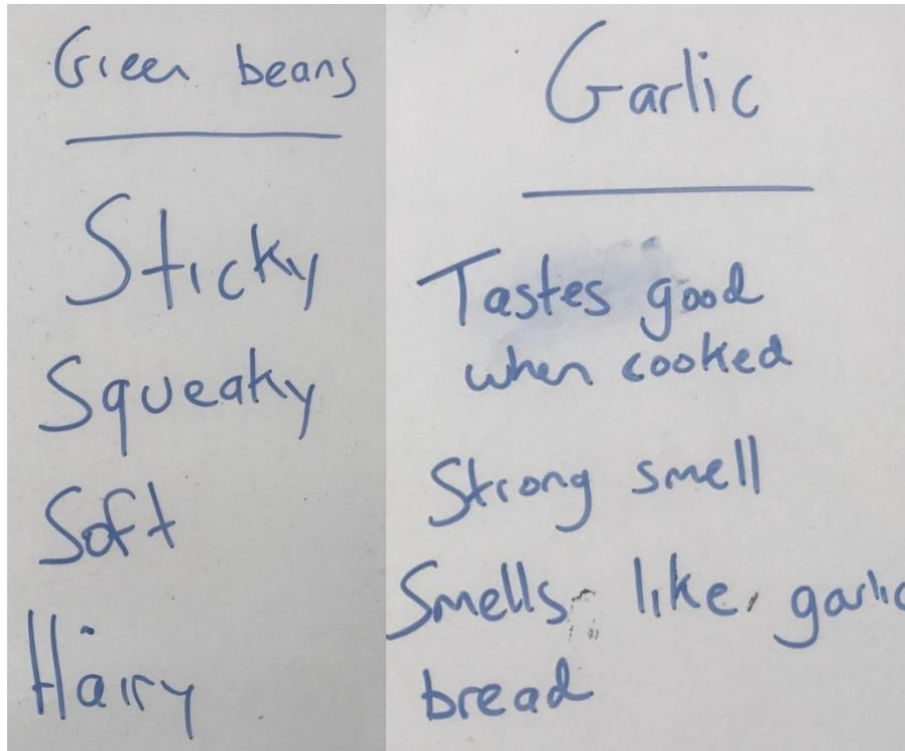 Green beans
Sticky
Squeaky
Soft
Hairy
Garlic
Tastes good
when cooked
Strong smell
Smells like garlic
bread